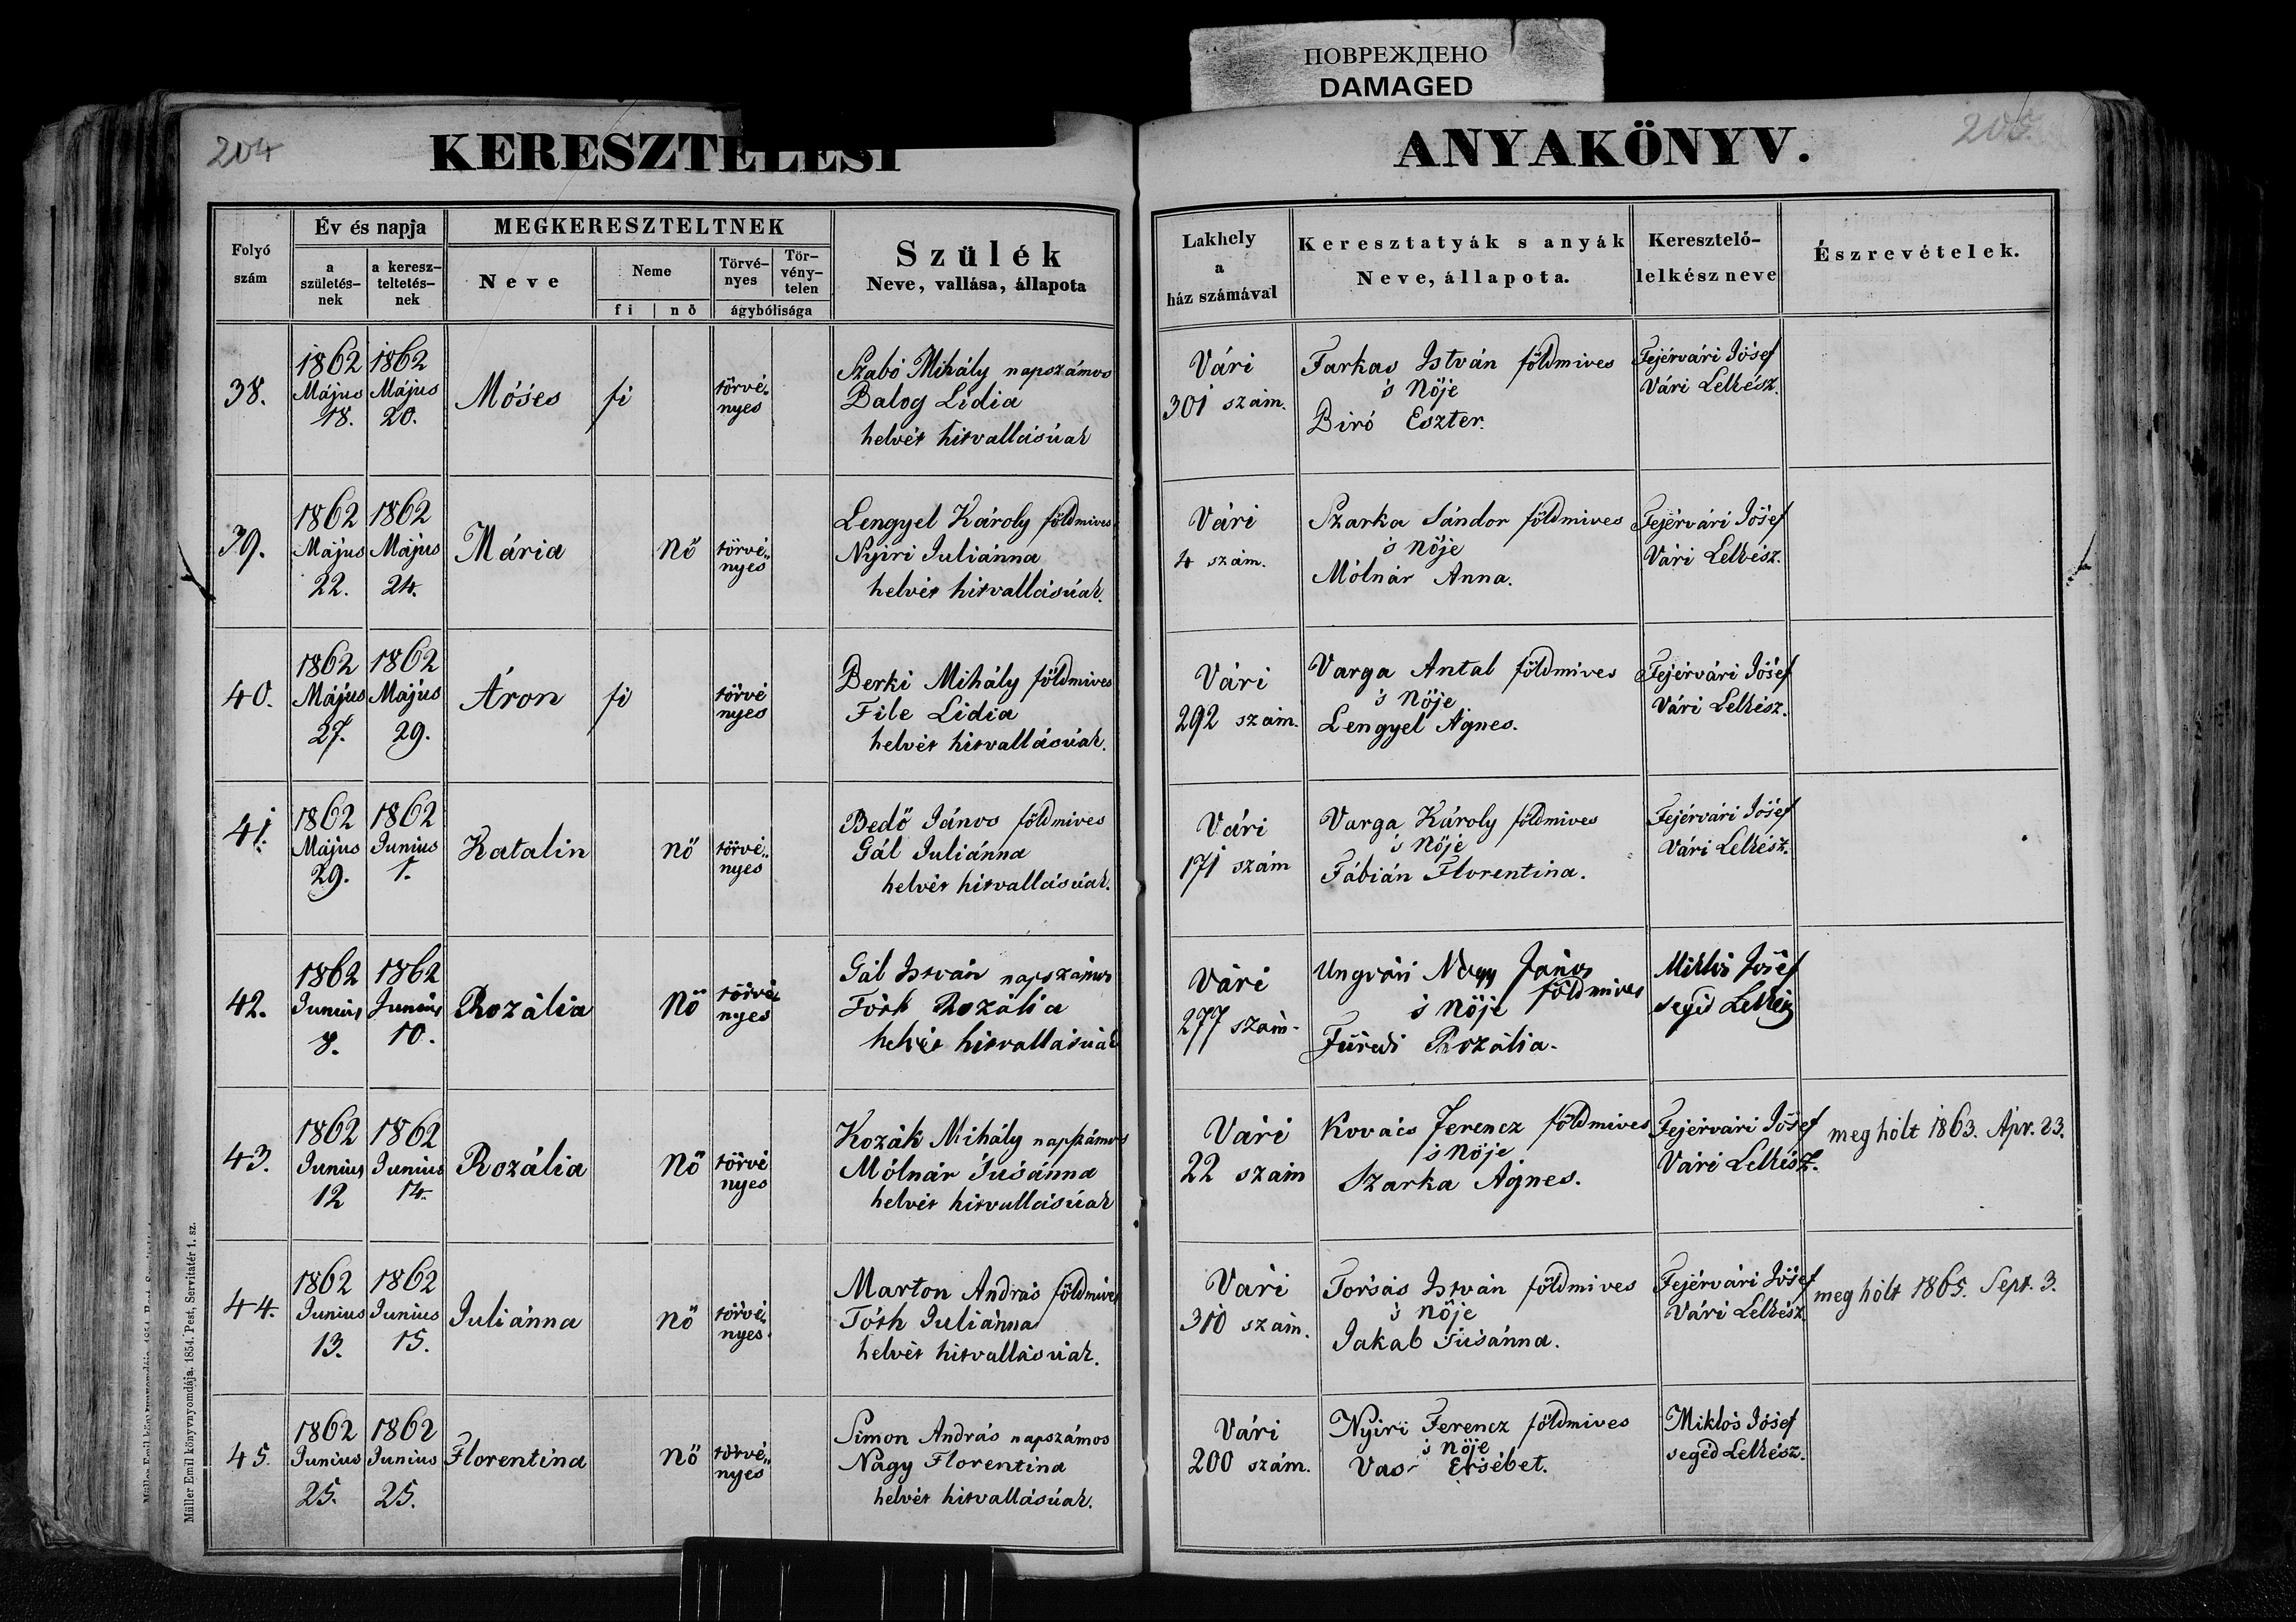 ПОВРЕЖДЕНО
DAMAGED
204
KERESZTELÉSI
ANYAKÖNYV.
Folyó szám
Év és napja
a születés-nek
a keresz-teltetés-nek
MEGKERESZTELTNEK
Neve
Neme
fi
nő
Törvé-nyes
Tör-vény-telen
ágybólisága
Szülék
Neve, vallása, állapota
Lakhely
a
ház számával
Keresztatyák s anyák
Neve, állapota.
Keresztelő-
lelkész neve
Észrevételek.
38.
1862 Május 18.
1862 Május 20.
Móses
fi
törvé-nyes
Szabó Mihály napszámos
Balog Lidia
helvét hitvallásúak
Vári
301 szám.
Farkas István földmives
's Nője
Biró Eszter.
Fejérvári Jósef
Vári Lelkész.
39.
1862 Május 22.
1862 Május 24.
Mária
Nő
törvé„nyes
Lengyel Károly földmives
Nyiri Juliánna
helvét hitvallásúak.
Vári
4 szám.
Szarka Sándor földmives
's Nője
Mólnár Anna.
Fejérvári Jósef
Vári Lelkész.
40.
1862 Május 27.
1862 Május 29.
Áron
fi
törvé nyes
Berki Mihály földmives
File Lidia
helvét hitvallásúak.
Vári
292 szám.
Varga Antal földmives
's Nője
Lengyel Ágnes.
Fejérvári Jósef
Vári Lelkész.
41.
1862 Május 29.
1862 Junius 1.
Katalin
nő
törvé„nyes
Bedő János földmives
Gál Juliánna
helvét hitvallásúak.
Vári
171 szám
Varga Károly földmives
's Nője
Fábián Florentina.
Fejérvári Jósef
Vári Lelkész.
42.
1862 Junius 8.
1862 Junius 10.
Rozália
Nő
törvé-nyes
Gál István napszámos
Tóth Rozália
helvét hitvallásúak
Vári
277 szám.
Ungvári Nagy János
földmives
's Nője
Füredi Rozália.
Miklós Jósef
segéd Lelkész
43.
1862 Junius 12
1862 Junius 14.
Rozália
Nő
törvé nyes
Kozák Mihály napszámos
Mólnár Susánna
helvét hitvallásúak
Vári
22 szám
Kovács Ferencz földmives
's Nője
Szarka Ágnes.
Fejérvári Jósef
Vári Lelkész.
meghólt 1863. Ápr. 23.
44.
1862 Junius 13.
1862 Junius 15.
Juliánna
Nő
törvé„nyes
Marton András földmives
Tóth Juliánna
helvét hitvallásúak.
Vári
310 szám.
István földmives
's Nője
Jakab Susánna.
Fejérvári Jósef
Vári Lelkész.
meghólt 1865. Sept. 3.
45.
1862 Junius 25.
1862 Junius 25.
Florentina
Nő
törvé„nyes
Simon András napszámos
Nagy Florentina
helvét hitvallásúak.
Vári
200 szám.
Nyiri Ferencz földmives
's Nője
Vas Ersébet.
Miklós Jósef
segéd Lelkész.
Müller Emil könyvnyomdája. 1854. Pest, Servitatér 1. sz.